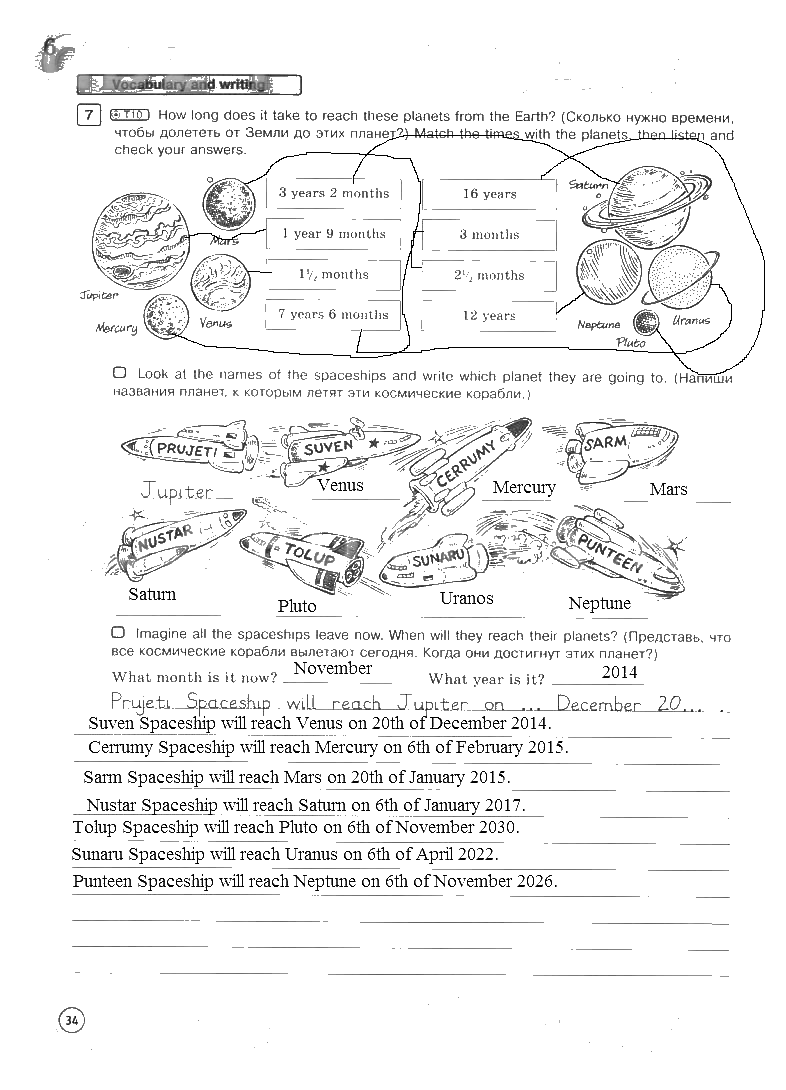 6
Vocabulary and writing
7 T10 How long does it take to reach these planets from the Earth? (Сколько нужно времени,
чтобы долететь от Земли до этих планет?) Match the times with the planets, then listen and
check your answers.
Saturn
3 years 2 months
16 years
Mars
1 year 9 months
3 months
1½ months
2½ months
Jupiter
Venus
Mercury
7 years 6 months
12 years
Neptune
Uranus
Pluto
Look at the names of the spaceships and write which planet they are going to. (Напиши
названия планет, к которым летят эти космические корабли.)
PRUJETI
SUVEN
CERRUMY
SARM
Jupiter
Venus
Mercury
Mars
NUSTAR
TOLUP
SUNARU
PUNTEEN
Saturn
Pluto
Uranos
Neptune
Imagine all the spaceships leave now. When will they reach their planets? (Представь, что
все космические корабли вылетают сегодня. Когда они достигнут этих планет?)
What month is it now? November What year is it? 2014
Prujeti Spaceship will reach Jupiter on ... December 20... .
Suven Spaceship will reach Venus on 20th of December 2014.
Cerrumy Spaceship will reach Mercury on 6th of February 2015.
Sarm Spaceship will reach Mars on 20th of January 2015.
Nustar Spaceship will reach Saturn on 6th of January 2017.
Tolup Spaceship will reach Pluto on 6th of November 2030.
Sunaru Spaceship will reach Uranus on 6th of April 2022.
Punteen Spaceship will reach Neptune on 6th of November 2026.
34